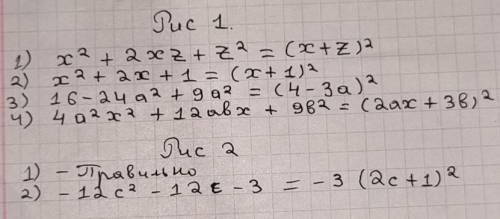 Рис 1.
1) x² + 2xz + z² = (x+z)²
2) x² + 2x + 1 = (x+1)²
3) 16 - 24a² + 9a² = (4 - 3a)²
4) 4a²x² + 12abx + 9b² = (2ax + 3b)²
Рис 2
1) - Правильно
2) - 12c² - 12c - 3 = - 3 (2c + 1)²